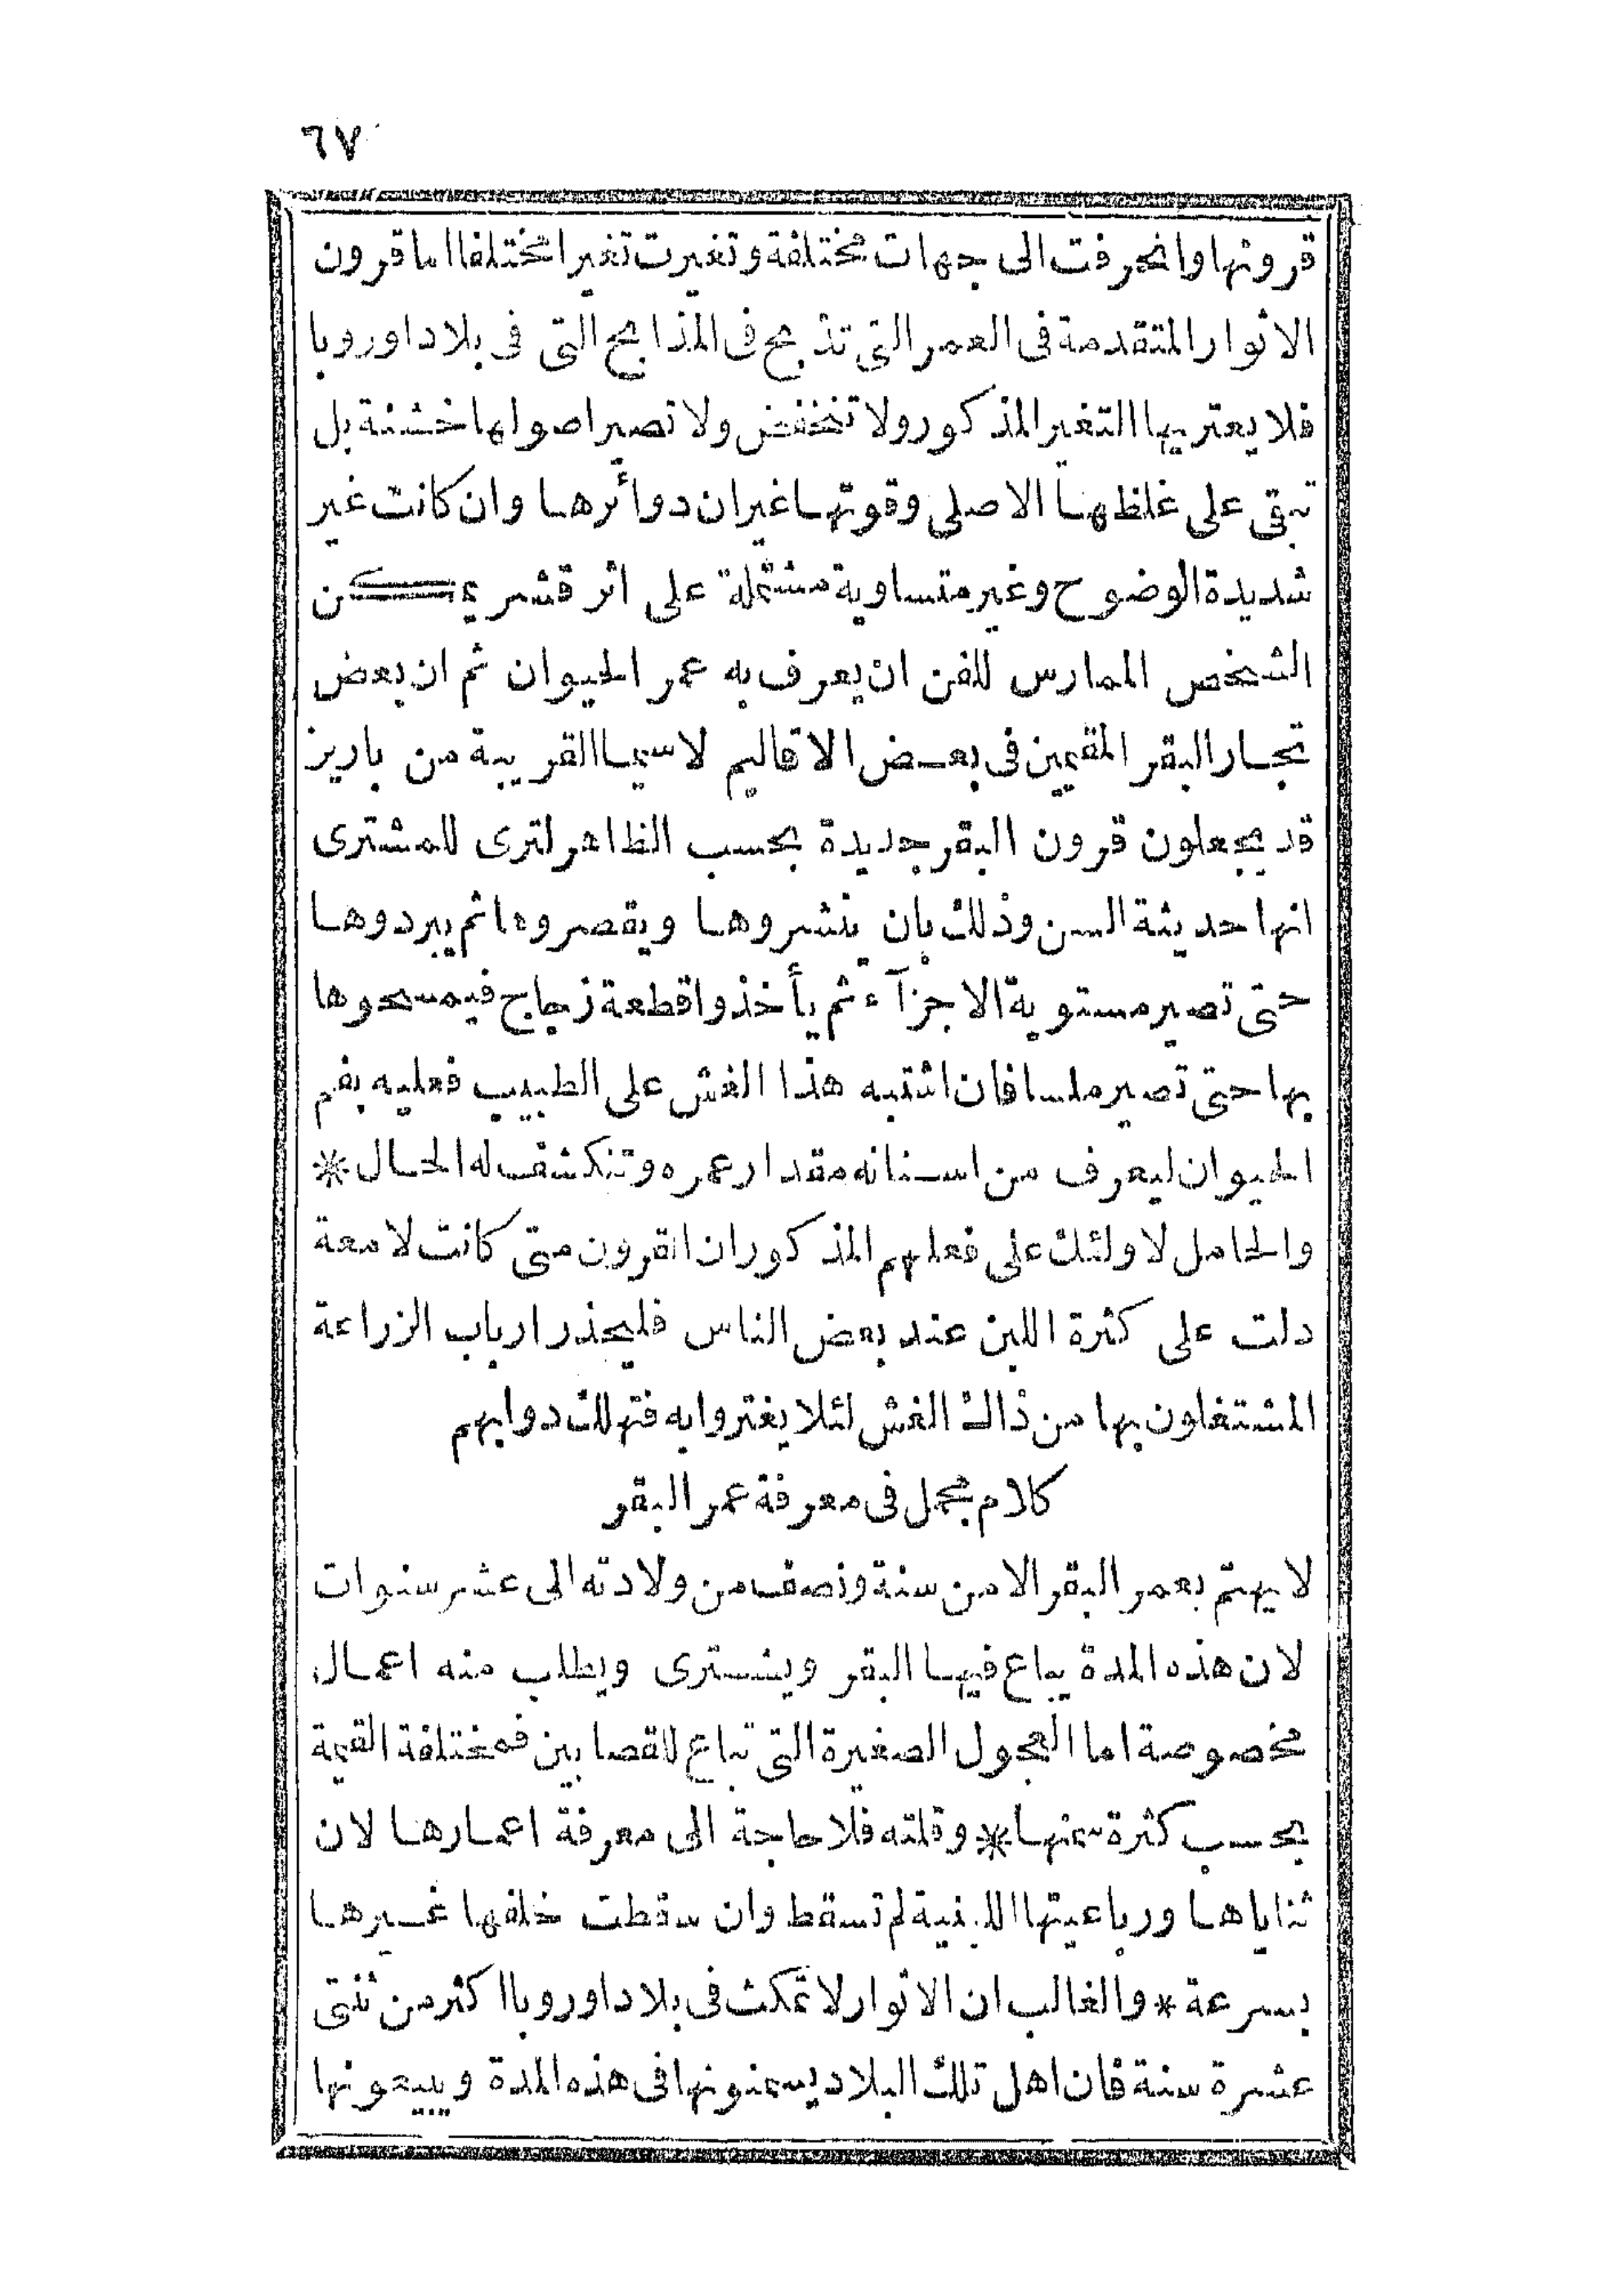 ٦٧
قرونها وانحرفت الى جهات مختلفة وتغيرت تغيرا مختلفا اما قرون
الاثوار المتقدمة فى العمر التى تذبح فى المذابح التى فى بلاد اوروبا
فلا يعتريها التغير المذكور ولا تنخفض ولا تصير اصولها خشنة بل
تبقى على غلظها الاصلى وقوتها غير ان دوائرها وان كانت غير
شديدة الوضوح وغير متساوية مشتملة على اثر قشر يمكن
الشخص الممارس للفن ان يعرف به عمر الحيوان ثم ان بعض
تجار البقر المقيمين فى بعض الاقاليم لاسيما القريبة من باريز
قد يجعلون قرون البقر جديدة بحسب الظاهر لترى للمشترى
انها حديثة السن وذلك بان ينشروها ويقصروها ثم يبردوها
حتى تصير مستوية الاجزآء ثم يأخذوا قطعة زجاج فيمسحوها
بها حتى تصير ملسا فان اشتبه هذا الغش على الطبيب فعليه بفم
الحيوان ليعرف من اسنانه مقدار عمره وتنكشف له الحال *
والحامل لاولئك على فعلهم المذكور ان القرون متى كانت لامعة
دلت على كثرة اللبن عند بعض الناس فليحذر ارباب الزراعة
المشتغلون بها من ذاك الغش لئلا يغتروا به فتهلك دوابهم
كلام مجمل فى معرفة عمر البقر
لا يهتم بعمر البقر الا من سنة ونصف من ولادته الى عشر سنوات
لان هذه المدة يباع فيها البقر ويشترى ويطلب منه اعمال
مخصوصة اما العجول الصغيرة التى تباع للقصابين فمختلفة القيمة
بحسب كثرة سمنها * وقلته فلا حاجة الى معرفة اعمارها لان
ثناياها ورباعيتها اللبنية لم تسقط وان سقطت خلفها غيرها
بسرعة * والغالب ان الاثوار لا تمكث فى بلاد اوروبا اكثر من ثنتى
عشرة سنة فان اهل تلك البلاد يسمنونها فى هذه المدة ويبيعونها